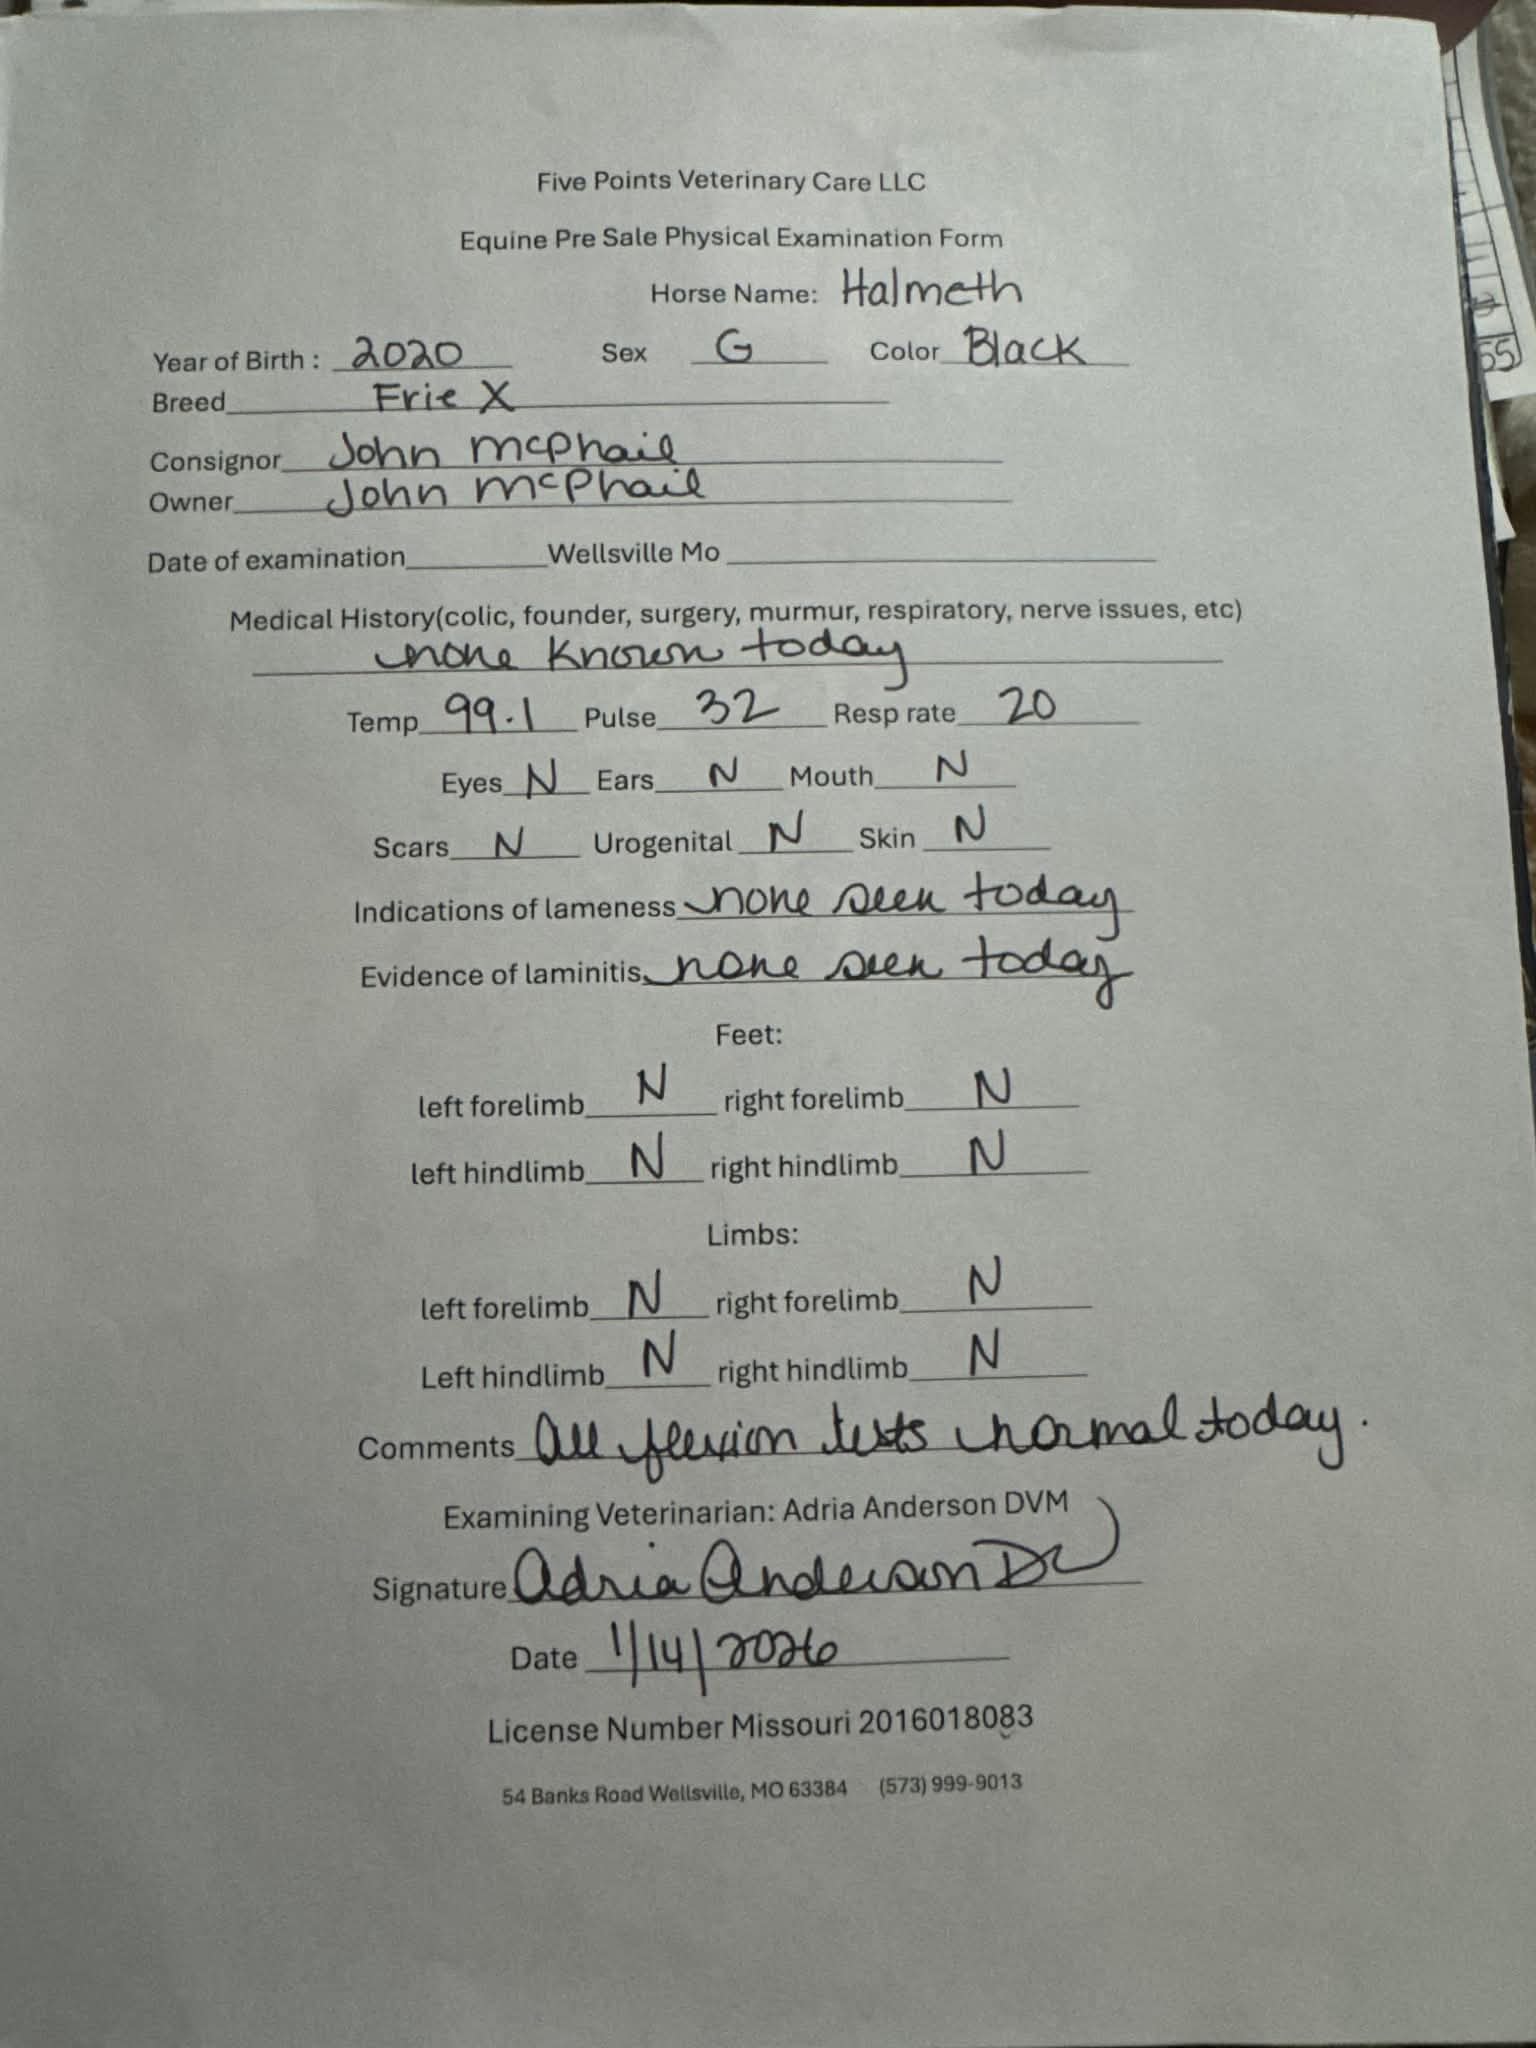 Five Points Veterinary Care LLC
Equine Pre Sale Physical Examination Form
Horse Name: Halmeth
Year of Birth : 2020 Sex G Color Black
Breed Frie X
Consignor John McPhail
Owner John McPhail
Date of examination Wellsville Mo
Medical History(colic, founder, surgery, murmur, respiratory, nerve issues, etc)
none known today
Temp 99.1 Pulse 32 Resp rate 20
Eyes N Ears N Mouth N
Scars N Urogenital N Skin N
Indications of lameness none seen today
Evidence of laminitis none seen today
Feet:
left forelimb N right forelimb N
left hindlimb N right hindlimb N
Limbs:
left forelimb N right forelimb N
Left hindlimb N right hindlimb N
Comments All flexion tests normal today.
Examining Veterinarian: Adria Anderson DVM
Signature Adria Anderson
Date 1/14/2026
License Number Missouri 2016018083
54 Banks Road Wellsville, MO 63384 (573) 999-9013
55